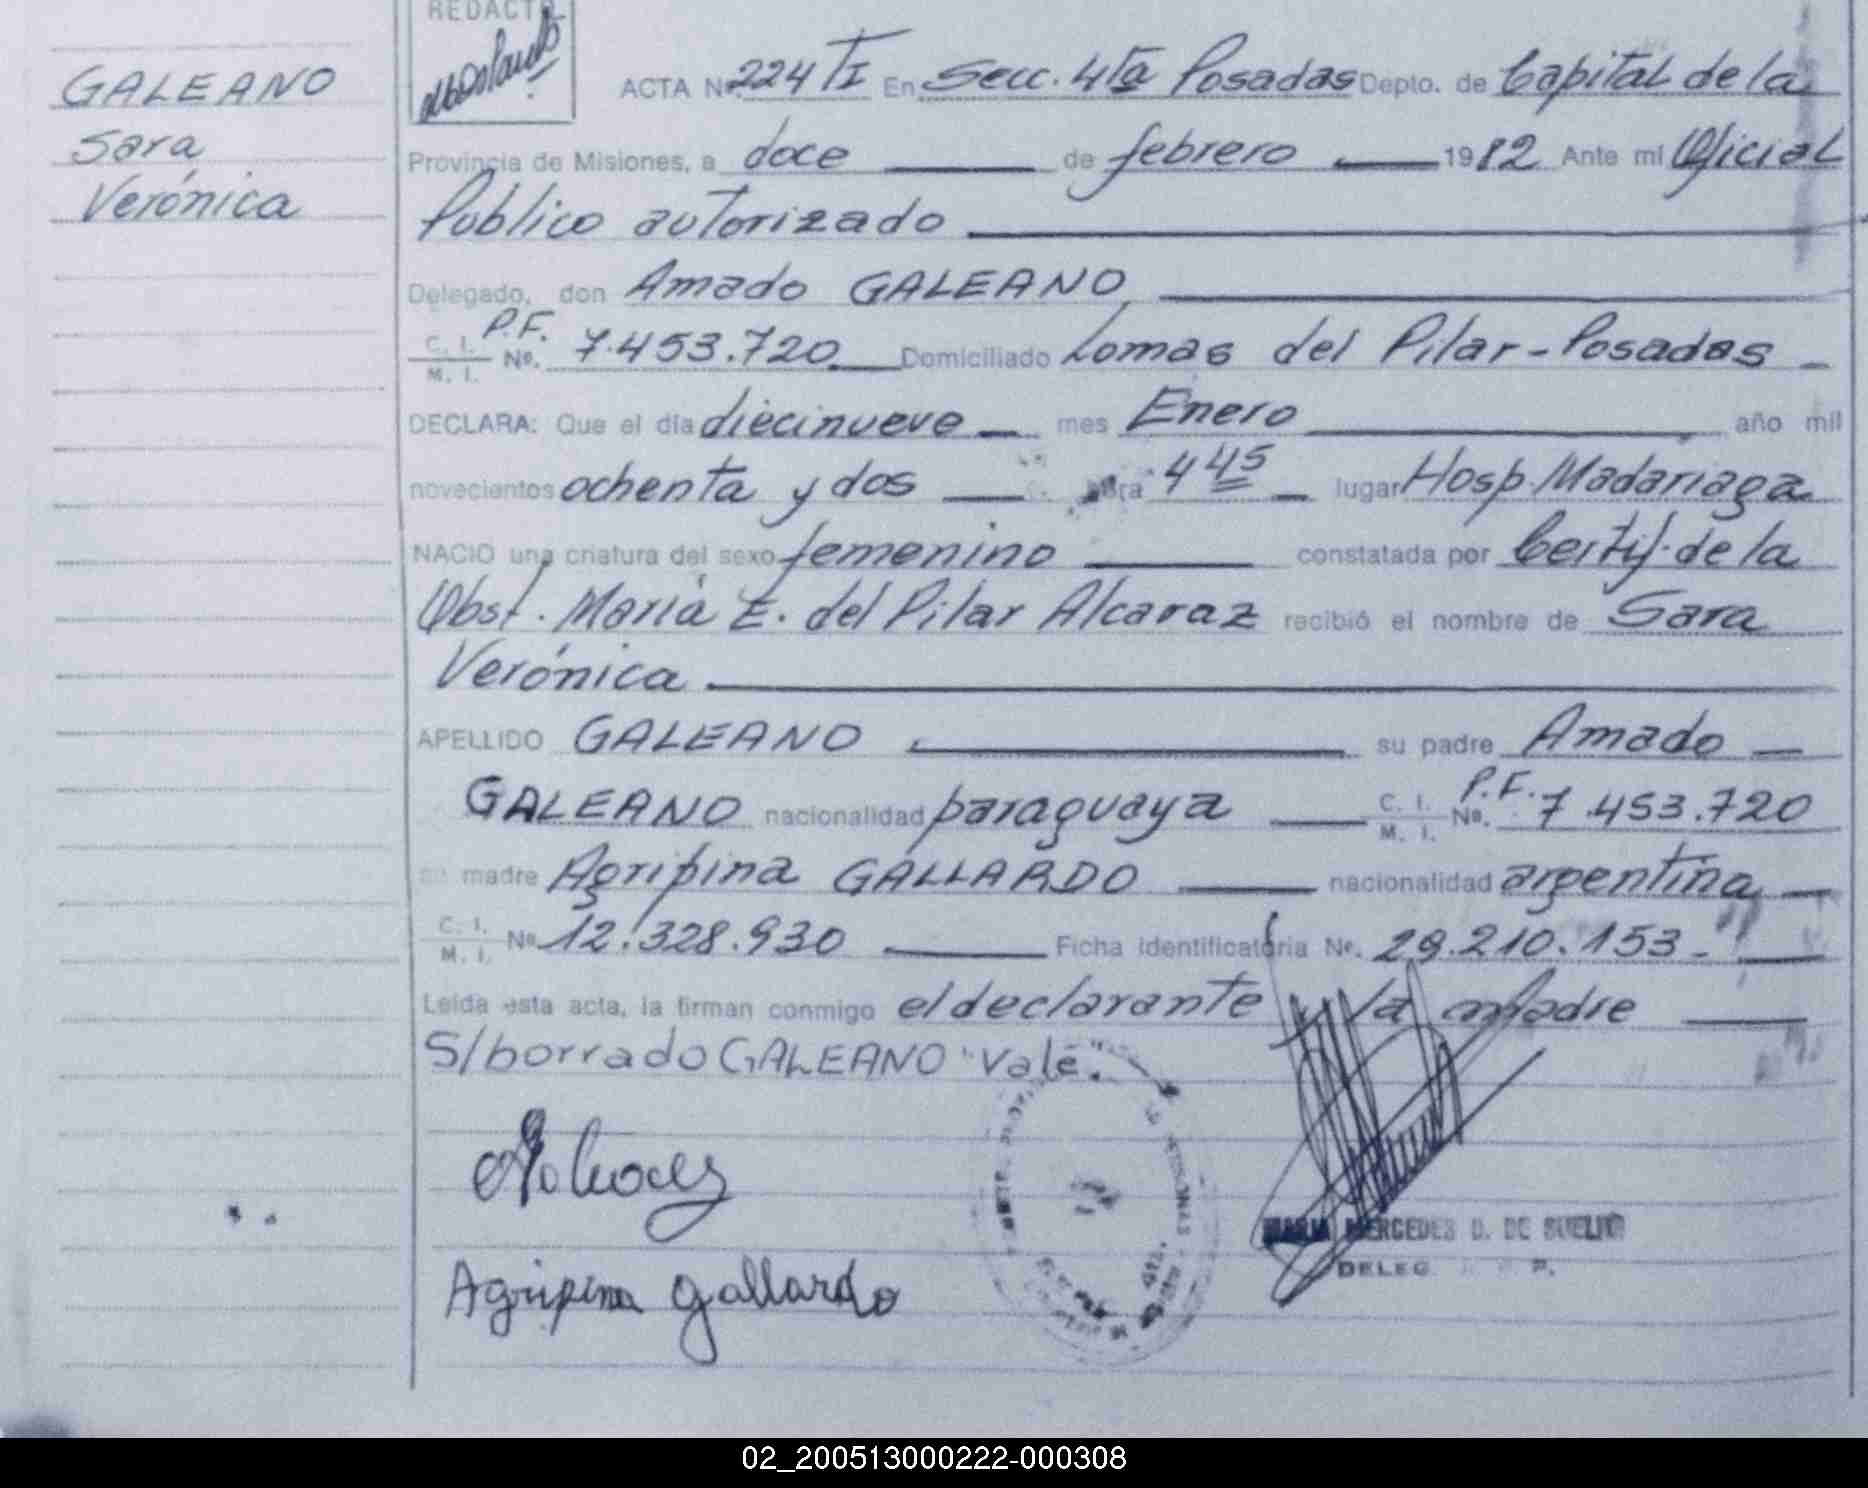 GALEANO
Sara
Verónica
REDACTÓ
ACTA Nº 224 TI En Secc. 4ta Posadas Depto. de Capital de la
Provincia de Misiones, a doce de febrero 1982 Ante mi Oficial
Público autorizado
Delegado, don Amado GALEANO
C. I. M. I. P.F. Nº. 7.453.720 Domiciliado Lomas del Pilar - Posadas
DECLARA: Que el día diecinueve mes Enero año mil
novecientos ochenta y dos hora 4 45 lugar Hosp. Madariaga
NACIO una criatura del sexo femenino constatada por Certif. de la
Obst. María E. del Pilar Alcaraz recibió el nombre de Sara
Verónica
APELLIDO GALEANO su padre Amado
GALEANO nacionalidad paraguaya C. I. M. I. P.F. Nº. 7.453.720
su madre Agripina GALLARDO nacionalidad argentina
C. I. M. I. Nº 12.328.930 Ficha Identificatoria Nº. 29.210.153 -
Leída esta acta, la firman conmigo el declarante y la madre
S/borrado GALEANO "Vale".
Agripina Gallardo
MARIA MERCEDES D. DE
DELEG. P.
02_200513000222-000308